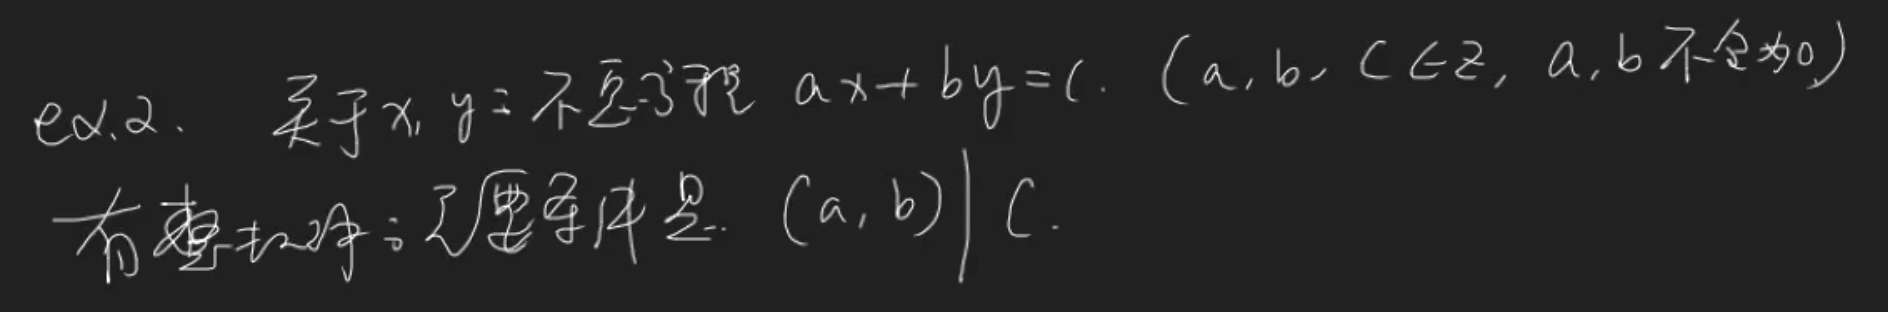 ex.2. 关于x, y的不定方程 ax+by=c. (a, b, c∈Z, a, b不全为0)
有整数解的充要条件是 (a, b)|c.